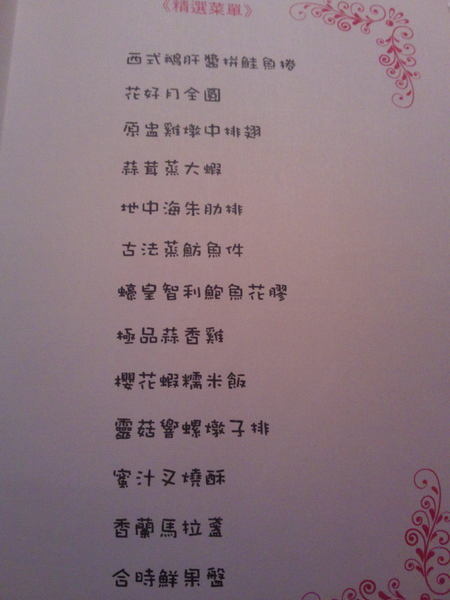 《精選菜單》
西式鵝肝醬拼鮭魚捲
花好月全圓
原盅雞燉中排翅
蒜茸蒸大蝦
地中海朱肋排
古法蒸魴魚件
蠔皇智利鮑魚花膠
極品蒜香雞
櫻花蝦糯米飯
靈菇響螺燉子排
蜜汁叉燒酥
香蘭馬拉盞
合時鮮果盤